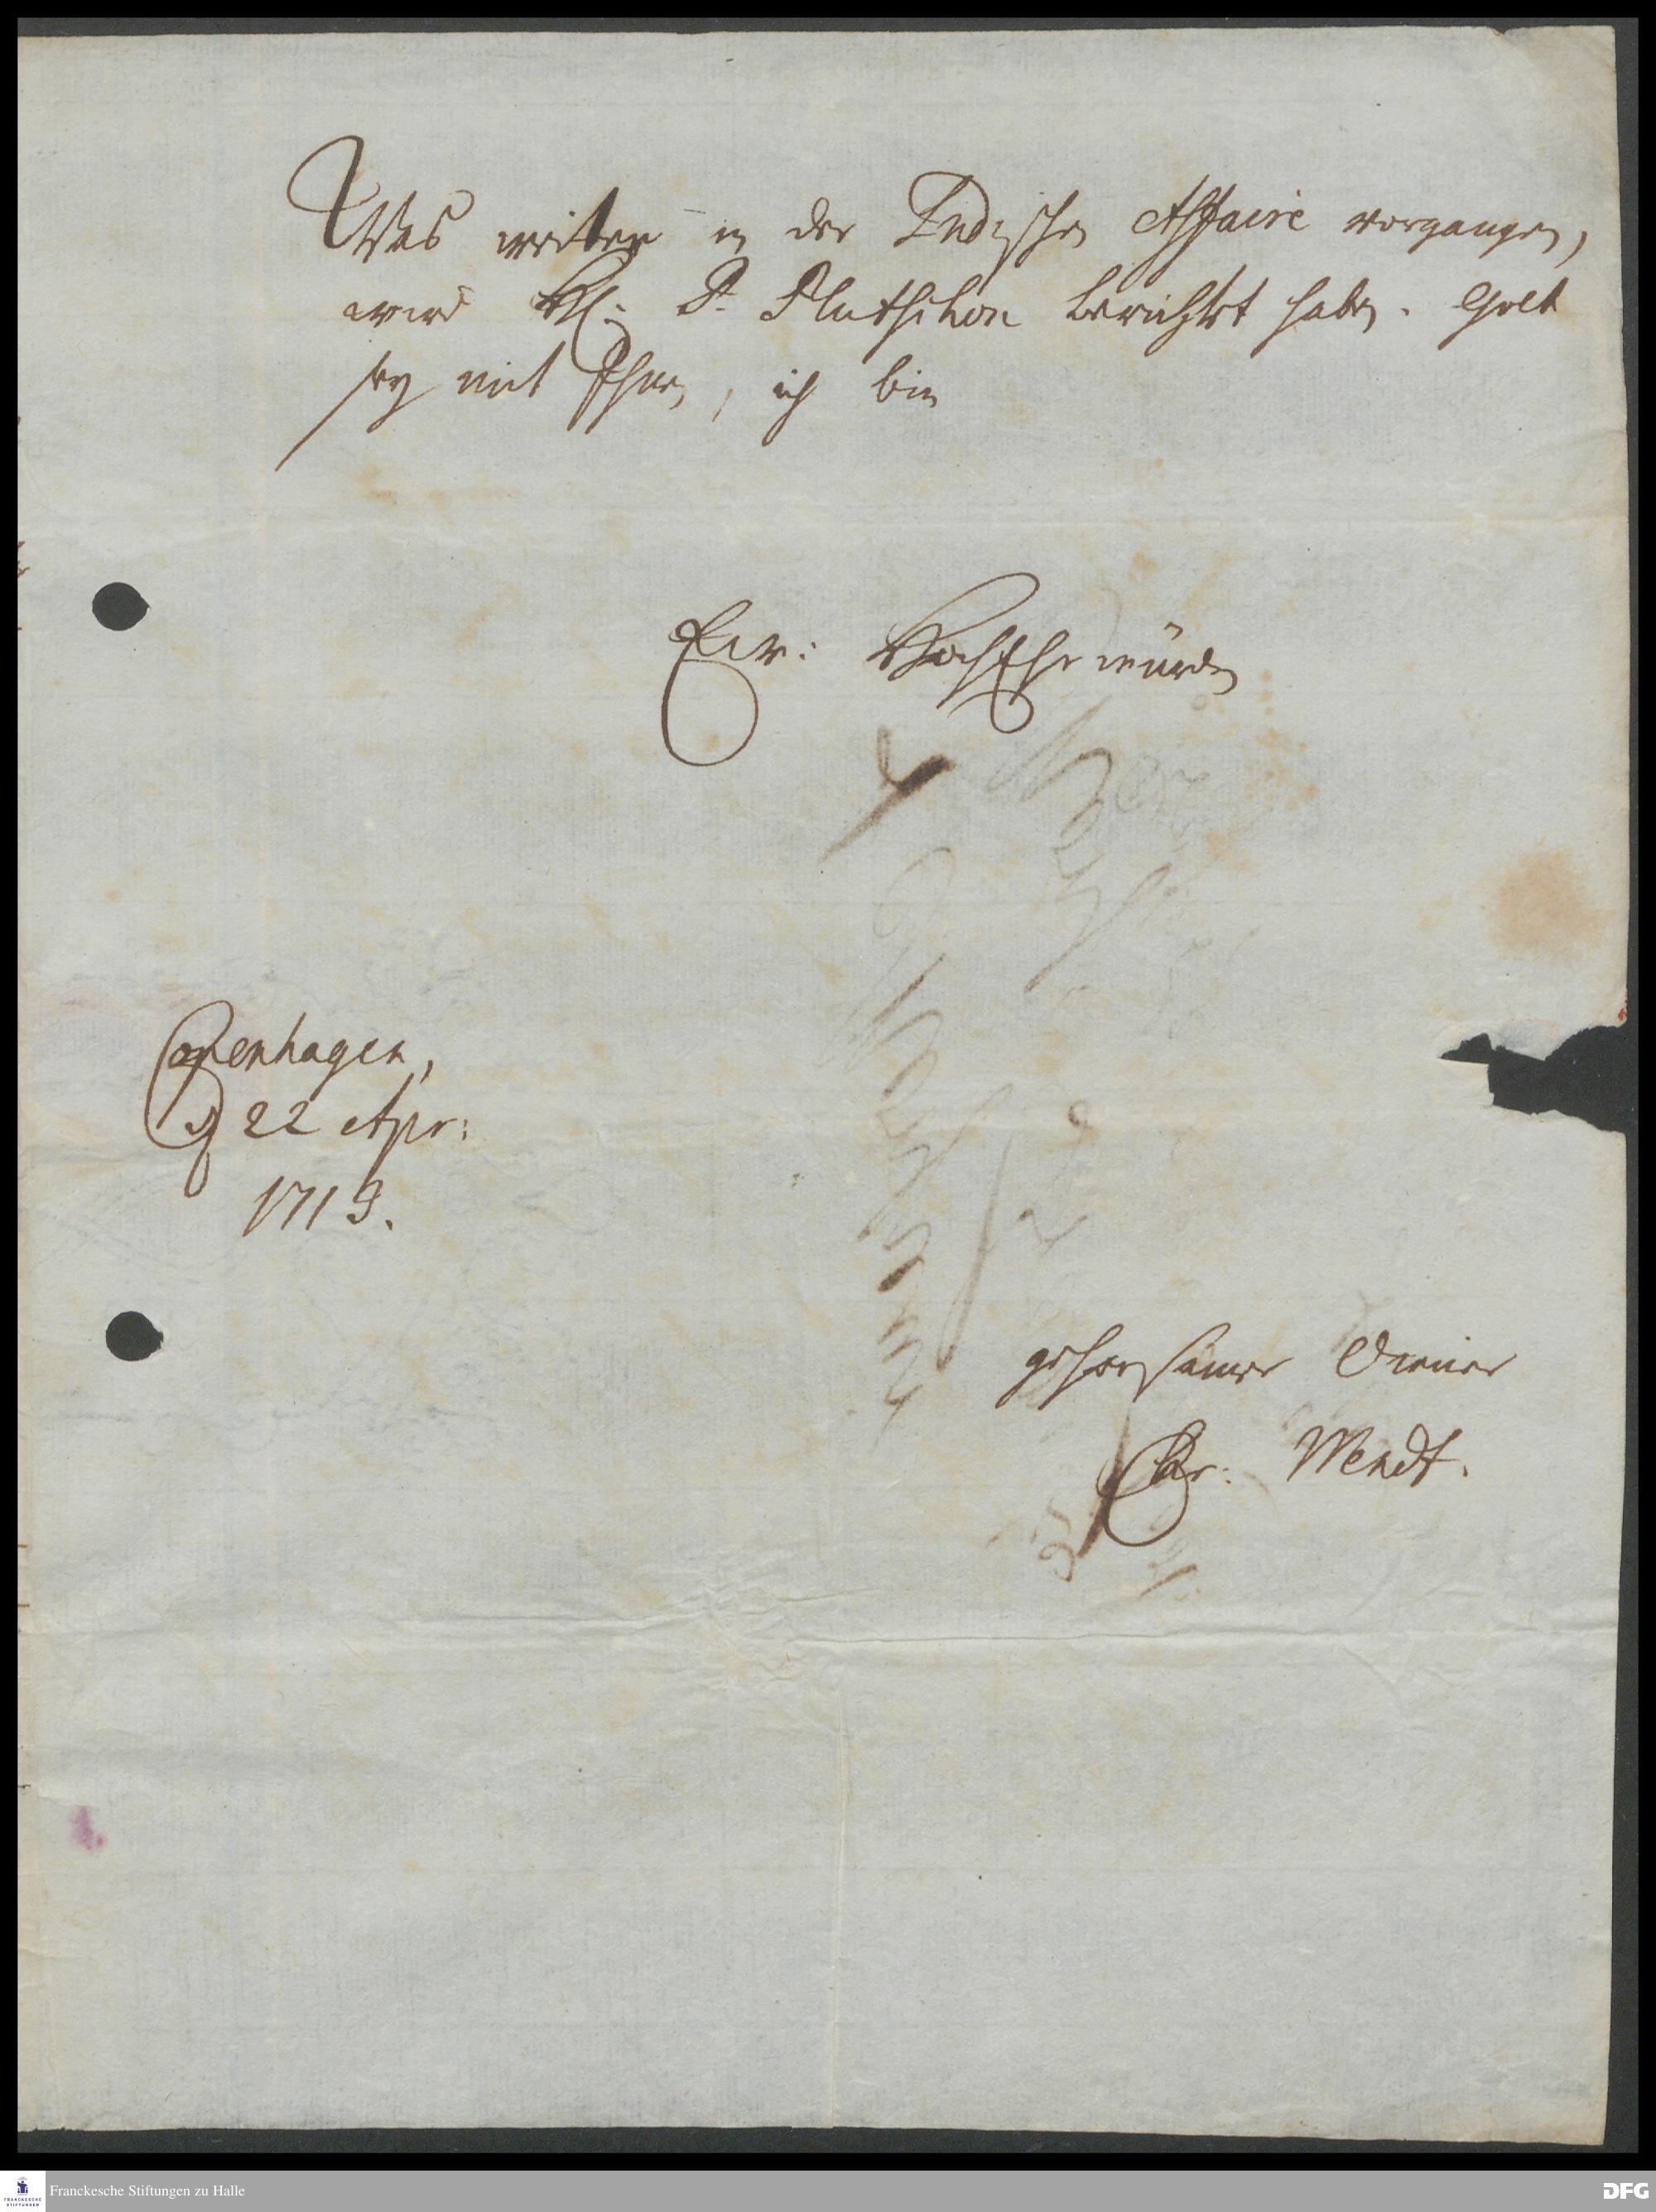 Was weiter in der Indischen Affaire vorgangen,
wird H. P. Plutschon berichtet haben. Gott
sey mit Ihnen, ich bin
Ew: HochEhrwürden
Copenhagen,
d 22 Apr:
1713.
gehorsamer Diener
Chr: Wendt.
Franckesche Stiftungen zu Halle
FRANCKESCHE
STIFTUNGEN
DFG